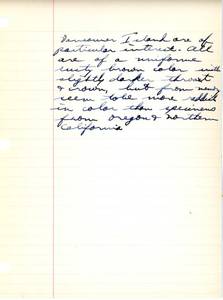 Vancouver Island are of
particular interest. All
are of a uniform
rusty brown color with
slightly darker throat
& crown, but from
seem to be more
in color than specimens
from oregon & northern
California